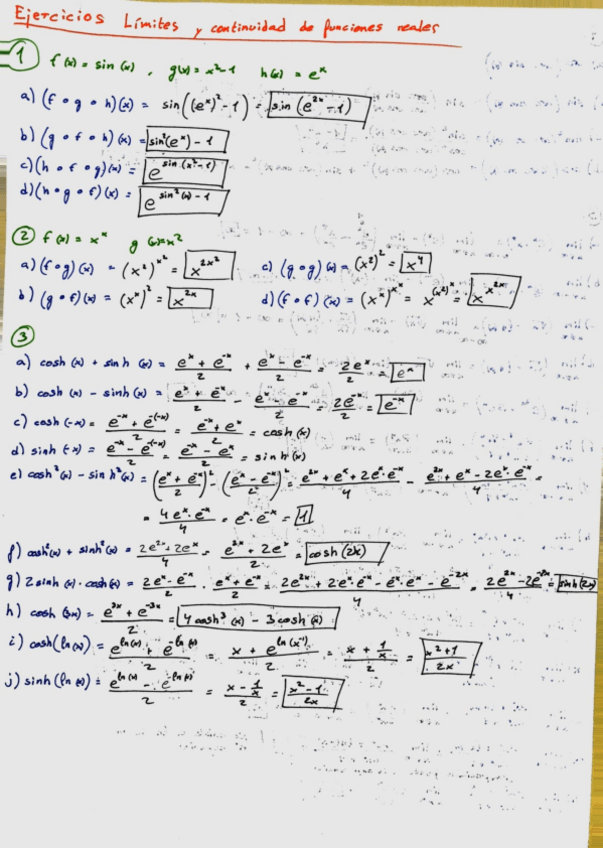 Ejercicios Límites y continuidad de funciones reales
1 f(x) = sin(x), g(x) = x²-1 h(x) = eˣ
a) (f∘g∘h)(x) = sin((eˣ)²-1) = sin(e²ˣ-1)
b) (g∘f∘h)(x) = sin²(eˣ)-1
c) (h∘f∘g)(x) = e^(sin(x²-1))
d) (h∘g∘f)(x) = e^(sin²(x)-1)
2 f(x) = xˣ g(x) = x²
a) (f∘g)(x) = (x²)^(x²) = x^(2x²) c) (g∘g)(x) = (x²)² = x⁴
b) (g∘f)(x) = (xˣ)² = x²ˣ d) (f∘f)(x) = (xˣ)^(xˣ) = x^((x²)^x) = x^(x^(2x))
3
a) cosh(x) + sinh(x) = (eˣ + e⁻ˣ)/2 + (eˣ - e⁻ˣ)/2 = 2eˣ/2 = eˣ
b) cosh(x) - sinh(x) = (eˣ + e⁻ˣ)/2 - (eˣ - e⁻ˣ)/2 = 2e⁻ˣ/2 = e⁻ˣ
c) cosh(-x) = (e⁻ˣ + e^(-(-x)))/2 = (e⁻ˣ + eˣ)/2 = cosh(x)
d) sinh(-x) = (e⁻ˣ - e^(-(-x)))/2 = (e⁻ˣ - eˣ)/2 = sinh(x)
e) cosh²(x) - sinh²(x) = ((eˣ + e⁻ˣ)/2)² - ((eˣ - e⁻ˣ)/2)² = (e²ˣ + eˣ + 2eˣ·e⁻ˣ)/4 - (e²ˣ + eˣ - 2eˣ·e⁻ˣ)/4 =
= (4eˣ·e⁻ˣ)/4 = eˣ·e⁻ˣ = 1
f) cosh²(x) + sinh²(x) = (2e²ˣ + 2eˣ)/4 = (e²ˣ + 2eˣ)/2 = cosh(2x)
g) 2sinh(x)·cosh(x) = (2eˣ - e⁻ˣ)/2 · (eˣ + e⁻ˣ)/2 = (2e²ˣ + 2eˣ·e⁻ˣ - eˣ·e⁻ˣ - e⁻²ˣ)/4 = (2e²ˣ - 2e⁻²ˣ)/4 = sinh(2x)
h) cosh(3x) = (e³ˣ + e⁻³ˣ)/2 = 4cosh³(x) - 3cosh(x)
i) cosh(ln(x)) = (e^(ln(x)) + e^(-ln(x)))/2 = (x + e^(ln(x⁻¹)))/2 = (x + 1/x)/2 = (x²+1)/2x
j) sinh(ln(x)) = (e^(ln(x)) - e^(-ln(x)))/2 = (x - 1/x)/2 = (x²-1)/2x